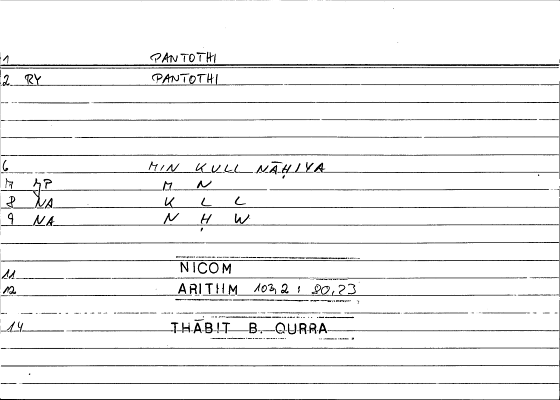 1 PANTOTHI
2 RY PANTOTHI
6 MIN KULL NĀḤIYA
7 JP M N
8 NA K L L
9 NA N Ḥ W
11 NICOM
12 ARITHM 103,2 : 90,23
14 THĀBIT B. QURRA